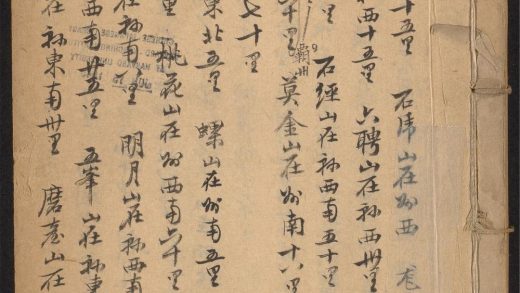 十五里 山在州西
西十五里 六聘山在州西卅里
里 石經山在州西南五十里
十里 霸州 莫金山在州南十六里
七十里
東北五里 螺山在州南五里
里 桃花山在州西南六十里
在州南里 明月山在州西南
西南廿五里 五峯山在州東
在州東南卅里 磨臺山在